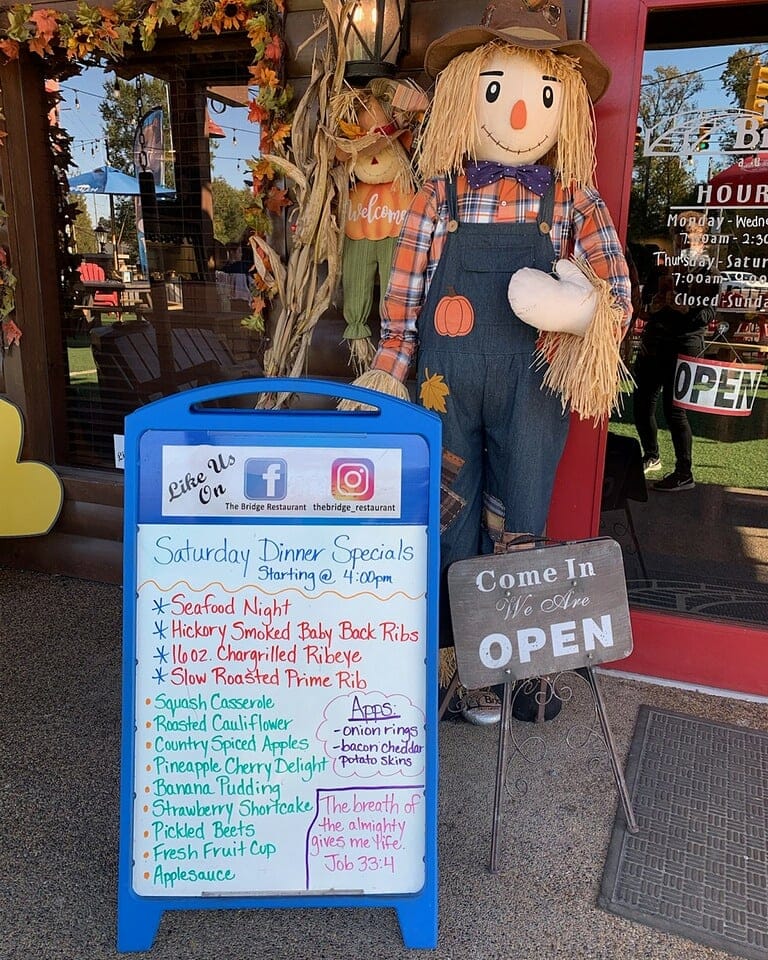 Welcome
HOUR
Monday - Wedn
7:00am - 2:30
Thursday - Satur
7:00am - 9:00
Closed - Sunda
OPEN
Like Us
On
The Bridge Restaurant
thebridge_restaurant
Saturday Dinner Specials
Starting @ 4:00pm
* Seafood Night
* Hickory Smoked Baby Back Ribs
* 16 oz. Chargrilled Ribeye
* Slow Roasted Prime Rib
• Squash Casserole
• Roasted Cauliflower
• Country Spiced Apples
• Pineapple Cherry Delight
• Banana Pudding
• Strawberry Shortcake
• Pickled Beets
• Fresh Fruit Cup
• Applesauce
Apps:
- onion rings
- bacon cheddar
potato skins
The breath of
the almighty
gives me life.
Job 33:4
Come In
We Are
OPEN